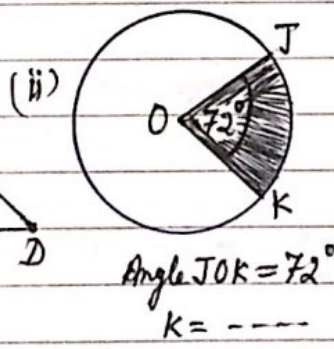 (ii)
J
O
72°
K
D
Angle JOK = 72°
K = ----